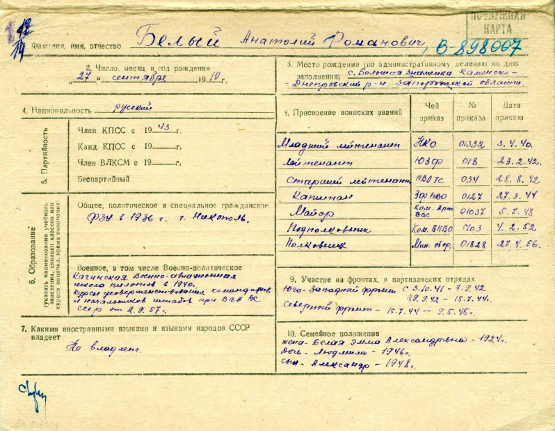 ПОСЛУЖНАЯ
КАРТА
Фамилия, имя, отчество Белый Анатолий Романович, В-898007
2. Число, месяц и год рождения
"27" сентября 1910 г.
3. Место рождения (по административному делению на дню
заполнения) с. Большая Знаменка Каменско-
Днепровский р-н Запорожской области
4. Национальность русский
5. Партийность
Член КПСС с 1943 г.
Канд КПСС с 19 г.
Член ВЛКСМ с 19 г.
Беспартийный
8. Присвоение воинских званий
Чей приказ
№ приказа
Дата приказа
Младший лейтенант НКО 01332 3.4.40.
Лейтенант ЮЗФ 018 23.2.42.
Старший лейтенант 034 28.8.42
Капитан 0127 27.3.44
Майор 01037 5.7.48
Подполковник Ком. 1703 4.2.52
Полковник Мин. обор. 01828 27.4.56.
6. Образование
Общее, политическое и специальное гражданское
ФЗУ в 1936 г. г. Никополь.
Военное, в том числе Военно-политическое
Качинская Военно-авиационная
школа пилотов в 1940.
Курсы усовершенствования командиров
и начальников штабов при
СССР от 2.9.57 г.
9. Участие на фронтах, в партизанских отрядах
Юго-Западной фронт с 3.10.41 - 7.9.42
19.9.42 - 15.7.44.
Северной фронт - 15.7.44 - 9.5.45.
7. Какими иностранными языками и языками народов СССР
владеет
Не владеет.
10. Семейное положение
жена - Белая Эмма Александровна - 1924 г.
Дочь - Людмила - 1946 г.
Сын - Александр - 1948 г.